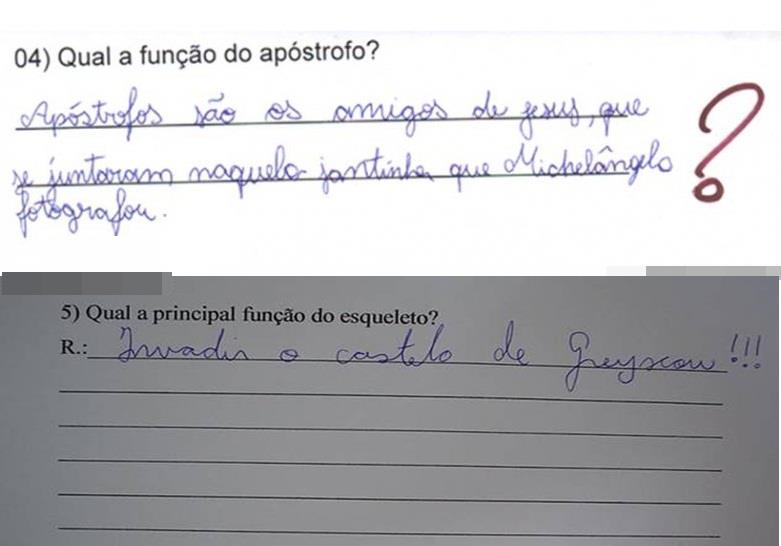 04) Qual a função do apóstrofo?
Apóstrofos são os amigos de jesus, que
se juntaram naquela jantinha que Michelângelo
fotografou.
?
5) Qual a principal função do esqueleto?
R.: Invadir o castelo de Greyscow!!!